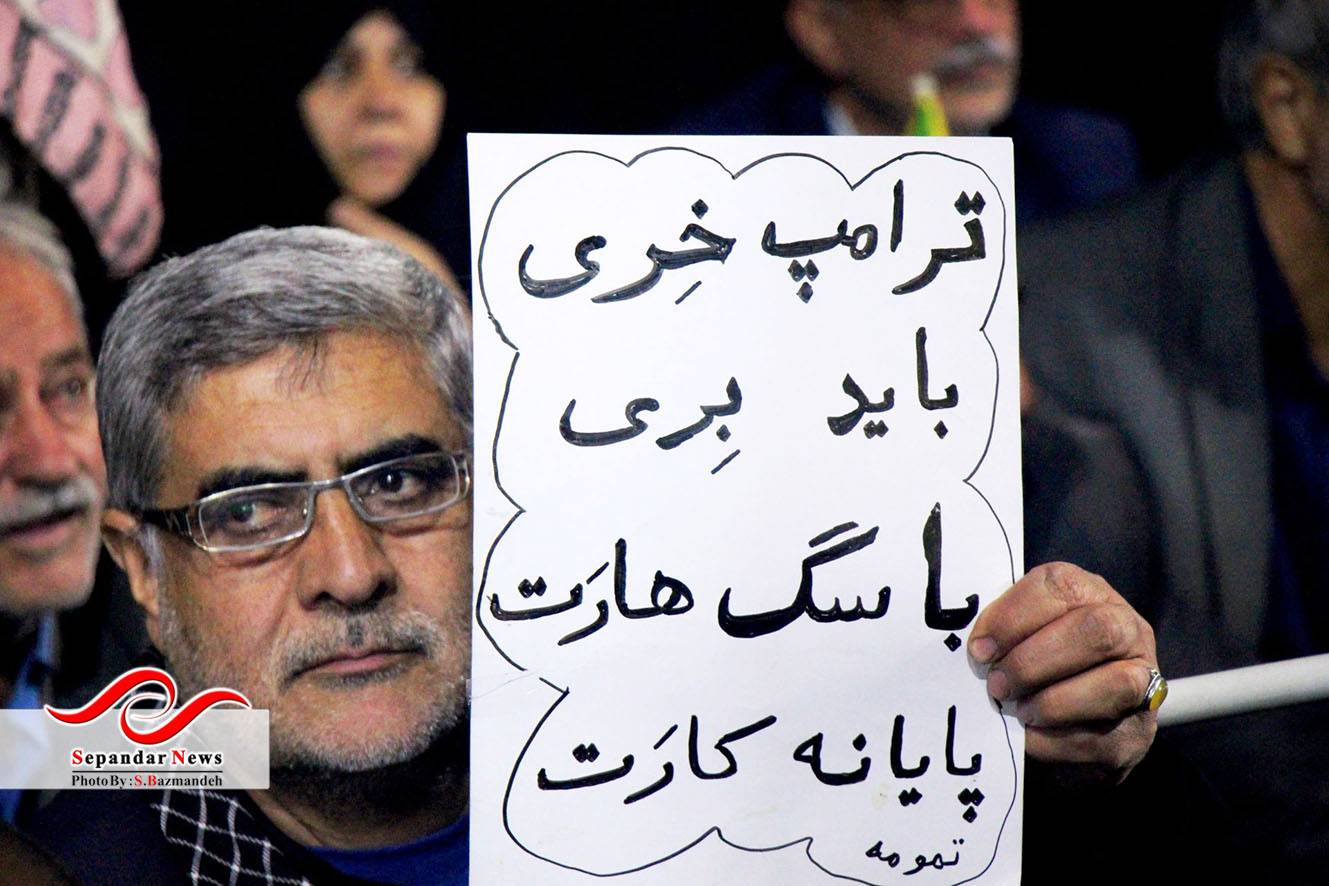 ترامپ خِری
باید بِری
با سگ هارَت
پایانه کارَت
تمومه
Sepandar News
Photo By : S.Bazmandeh